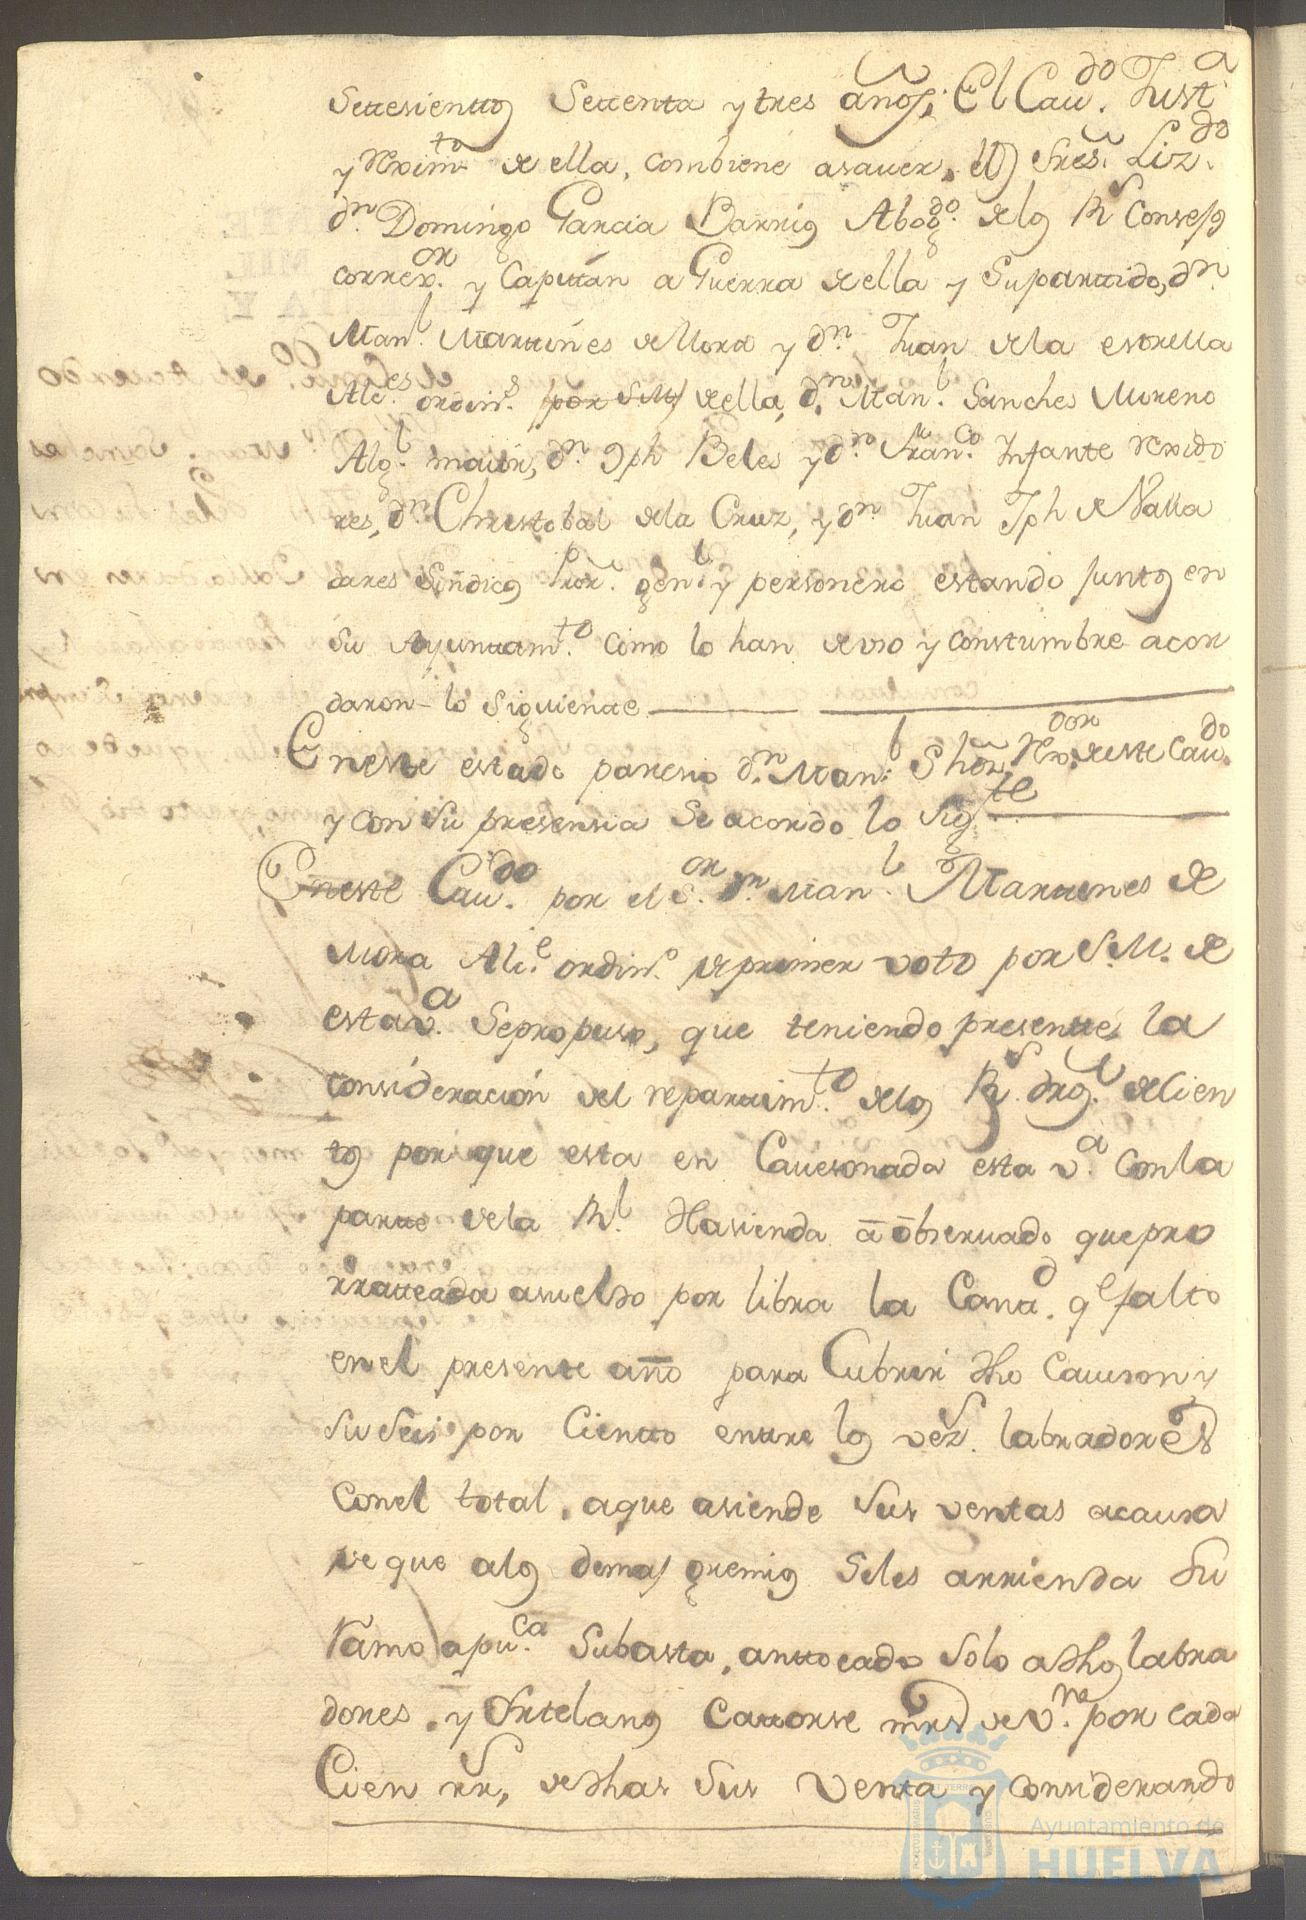 Settesientos Settenta y tres años; El Cav.do Just.a
y Rexim.to de ella, combiene asaver, los Sres. Liz.do
Dn. Domingo Garcia Barrios Abog.do delos R.s Consejos
correx.or y Capitán a Guerra de ella y su partido, dn.
Man.l Martines de Mora y dn. Juan dela estrella
Alc.es ordin.s por S.M. de ella, dn. Man.l Sanches Moreno
Alg.l maior, dn. Jph Beles y dn. Fran.co Infante Rexido
res, dn. Christobal dela Cruz, y dn. Juan Jph de Valla
dares Síndicos Pror. gen.l y personero estando juntos en
su Ayuntam.to como lo han de uso y constumbre acor
daron lo siguiente
En este estado paresio dn. Man.l Rexi.dor de este Cav.do
y con su presensia se acordo lo sig.te
En este Cav.do por el S.or dn. Man.l Martines de
Mora Alc.e ordin.o de primer voto por S.M. de
esta v.a se propuso, que teniendo presente la
consideración del repartim.to delos R.s dros. de Cien
tos por que esta en Cavesonada esta v.a con la
parte de la R.l Hasienda a observado que pro
rrateada a sueldo por libra la Cant.d q.e falto
en el presente año para Cubrir dho Caveson y
su seis por Ciento entre los vez.s labradores
con el total, a que asiende sus ventas a causa
de que a los demas gremios se les arrienda su
ramo a pu.ca subasta, an tocado solo a dhos labra
dores, y Ortelanos Catorse mrs de v.n por cada
Cien rr.s de dhas sus venta y considerando
Ayuntamiento de
HUELVA